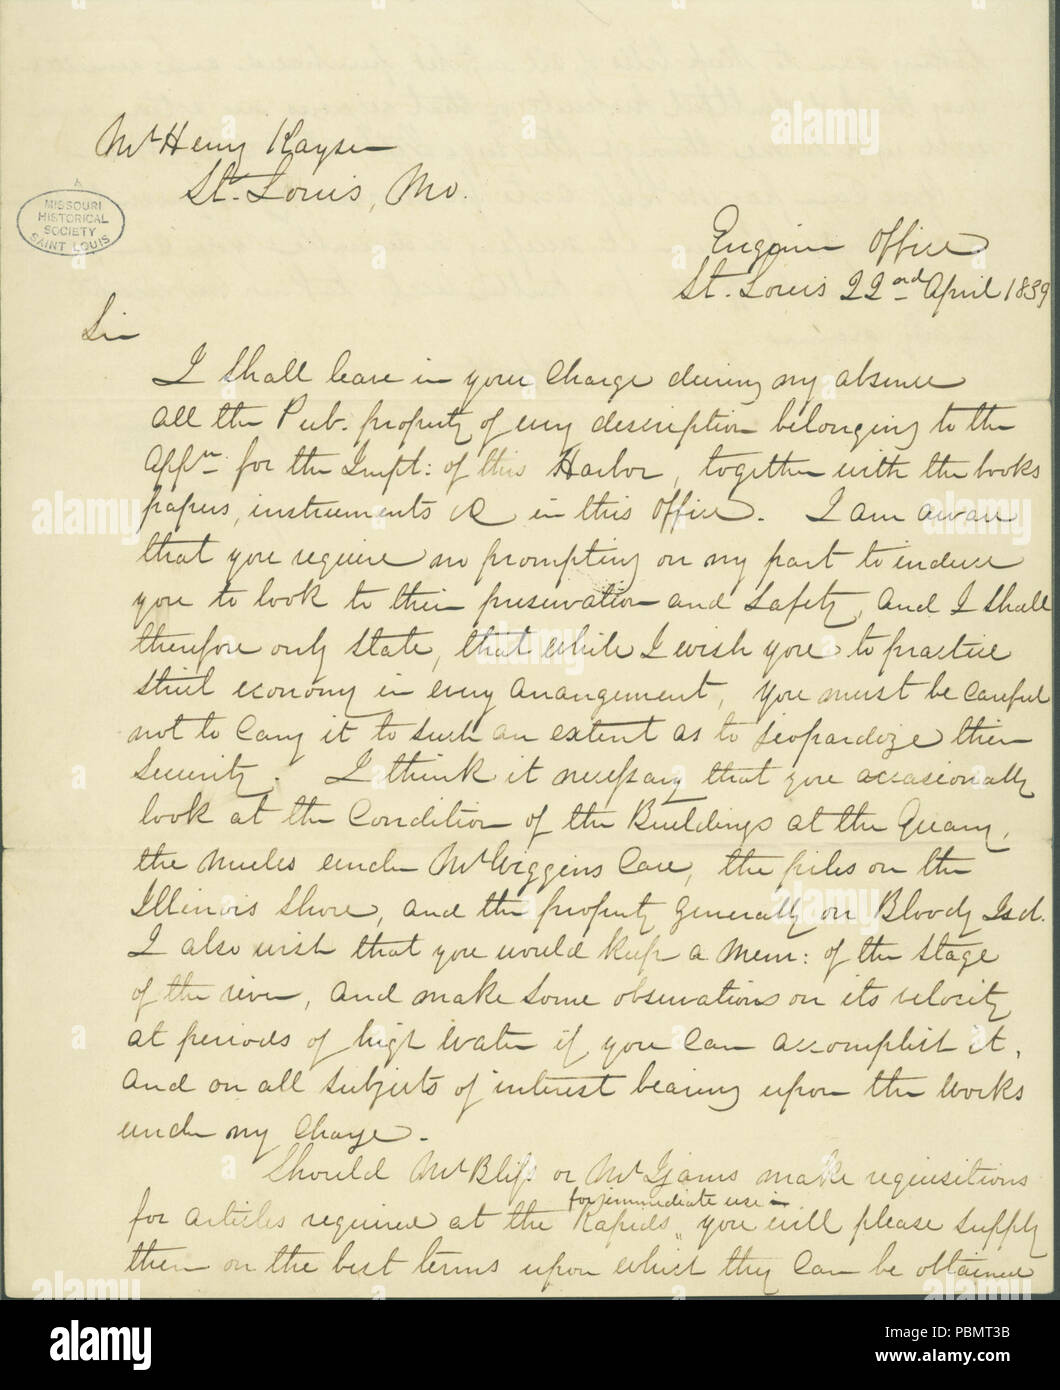 Mr Henry Kayser
St. Louis, Mo.
MISSOURI
HISTORICAL
SOCIETY
SAINT LOUIS
Engineer Office
St. Louis 22nd April 1839
Sir
I shall leave in your charge during my absence
all the Pub. property of every description belonging to the
appn. for the Impt: of this Harbor, together with the books
papers, instruments &c in this office. I am aware
that you require no prompting on my part to induce
you to look to their preservation and safety, and I shall
therefore only state, that while I wish you to practice
strict economy in every arrangement, you must be careful
not to carry it to such an extent as to jeopardize their
security. I think it necessary that you occasionally
look at the Condition of the Buildings at the Quarry,
the mules under Mr Wiggins Care, the piles on the
Illinois Shore, and the property generally on Bloody Isd.
I also wish that you would keep a mem: of the stage
of the river, and make some observations on its velocity
at periods of high water if you can accomplish it,
and on all subjects of interest bearing upon the works
under my charge.
Should Mr Bliss or Mr make requisitions
for immediate use in
for articles required at the Rapids, you will please supply
them on the best terms upon which they can be obtained
alamy
a
alamy
Image ID: PBMT3B
www.alamy.com